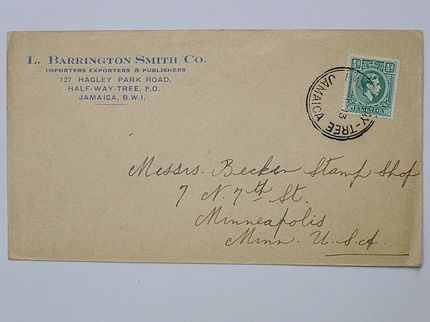 L. BARRINGTON SMITH CO.
IMPORTERS EXPORTERS & PUBLISHERS
127 HAGLEY PARK ROAD,
HALF-WAY-TREE, P.O.
JAMAICA, B.W.I.
JAMAICA
Y-TREE
JAMAICA
Messrs. Becker Stamp Shop
7 N. 7th St.
Minneapolis
Minn. U.S.A